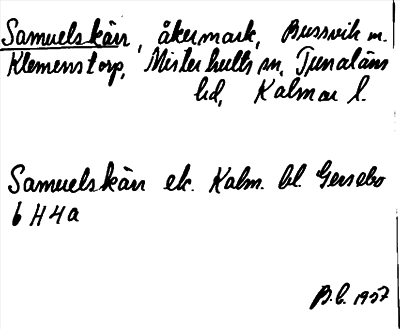 Samuelskärr, åkermark, Bussvik m.
Klemenstorp, Misterhults sn, Tunaläns
hd, Kalmar l.
Samuelskärr ek. Kalm. bl. Gersebo
6 H 4 a
B.C. 1957